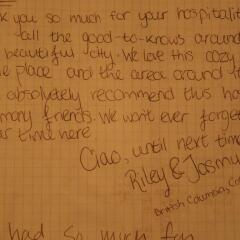 k you so much for your hospitali
tall the good-to-knows around
beautiful city. We love this cozy
e place and the area around t
absolutely recommend this ho
many friends. We won't ever forge
ur time here.
Ciao, until next time
Riley & Jasmi
British Columbia, Ca
had so much fun